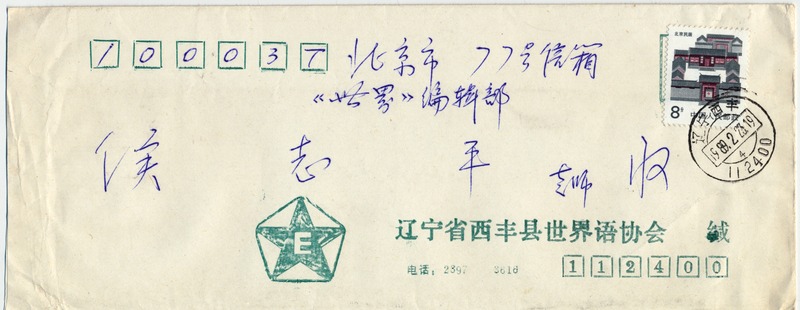 100037 北京市 77号信箱
《世界》编辑部
侯志平 老师 收
北京民居
8分 中国人民邮政
辽宁西丰
1989.2.23.19
4
112400
E
辽宁省西丰县世界语协会 缄
电话：2397 3616
112400